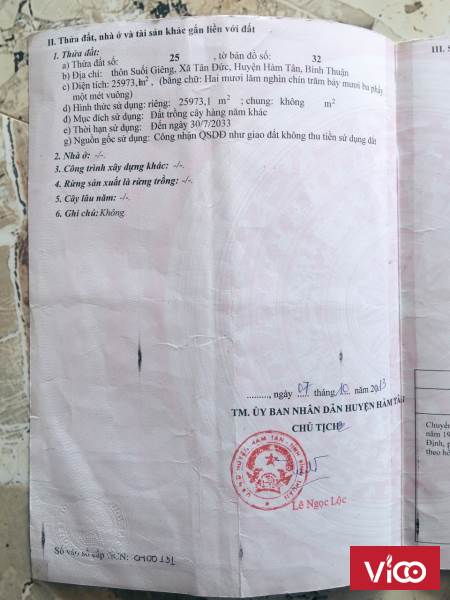 II. Thửa đất, nhà ở và tài sản khác gắn liền với đất
III. S
1. Thửa đất:
a) Thửa đất số: 25 , tờ bản đồ số: 32
b) Địa chỉ: thôn Suối Giêng, Xã Tân Đức, Huyện Hàm Tân, Bình Thuận
c) Diện tích: 25973,1m², (bằng chữ: Hai mươi lăm nghìn chín trăm bảy mươi ba phẩy
một mét vuông)
d) Hình thức sử dụng: riêng: 25973,1 m²; chung: không m²
đ) Mục đích sử dụng: Đất trồng cây hàng năm khác
e) Thời hạn sử dụng: Đến ngày 30/7/2033
g) Nguồn gốc sử dụng: Công nhận QSDĐ như giao đất không thu tiền sử dụng đất
2. Nhà ở: -/-.
3. Công trình xây dựng khác: -/-.
4. Rừng sản xuất là rừng trồng: -/-.
5. Cây lâu năm: -/-.
6. Ghi chú: Không.
.........., ngày 07 tháng 10 năm 2013
TM. ỦY BAN NHÂN DÂN HUYỆN HÀM TÂN
CHỦ TỊCH
Lê Ngọc Lộc
Chuyển
năm 19
Định, p
theo hồ
Số vào sổ cấp GCN: CH00131
VICO